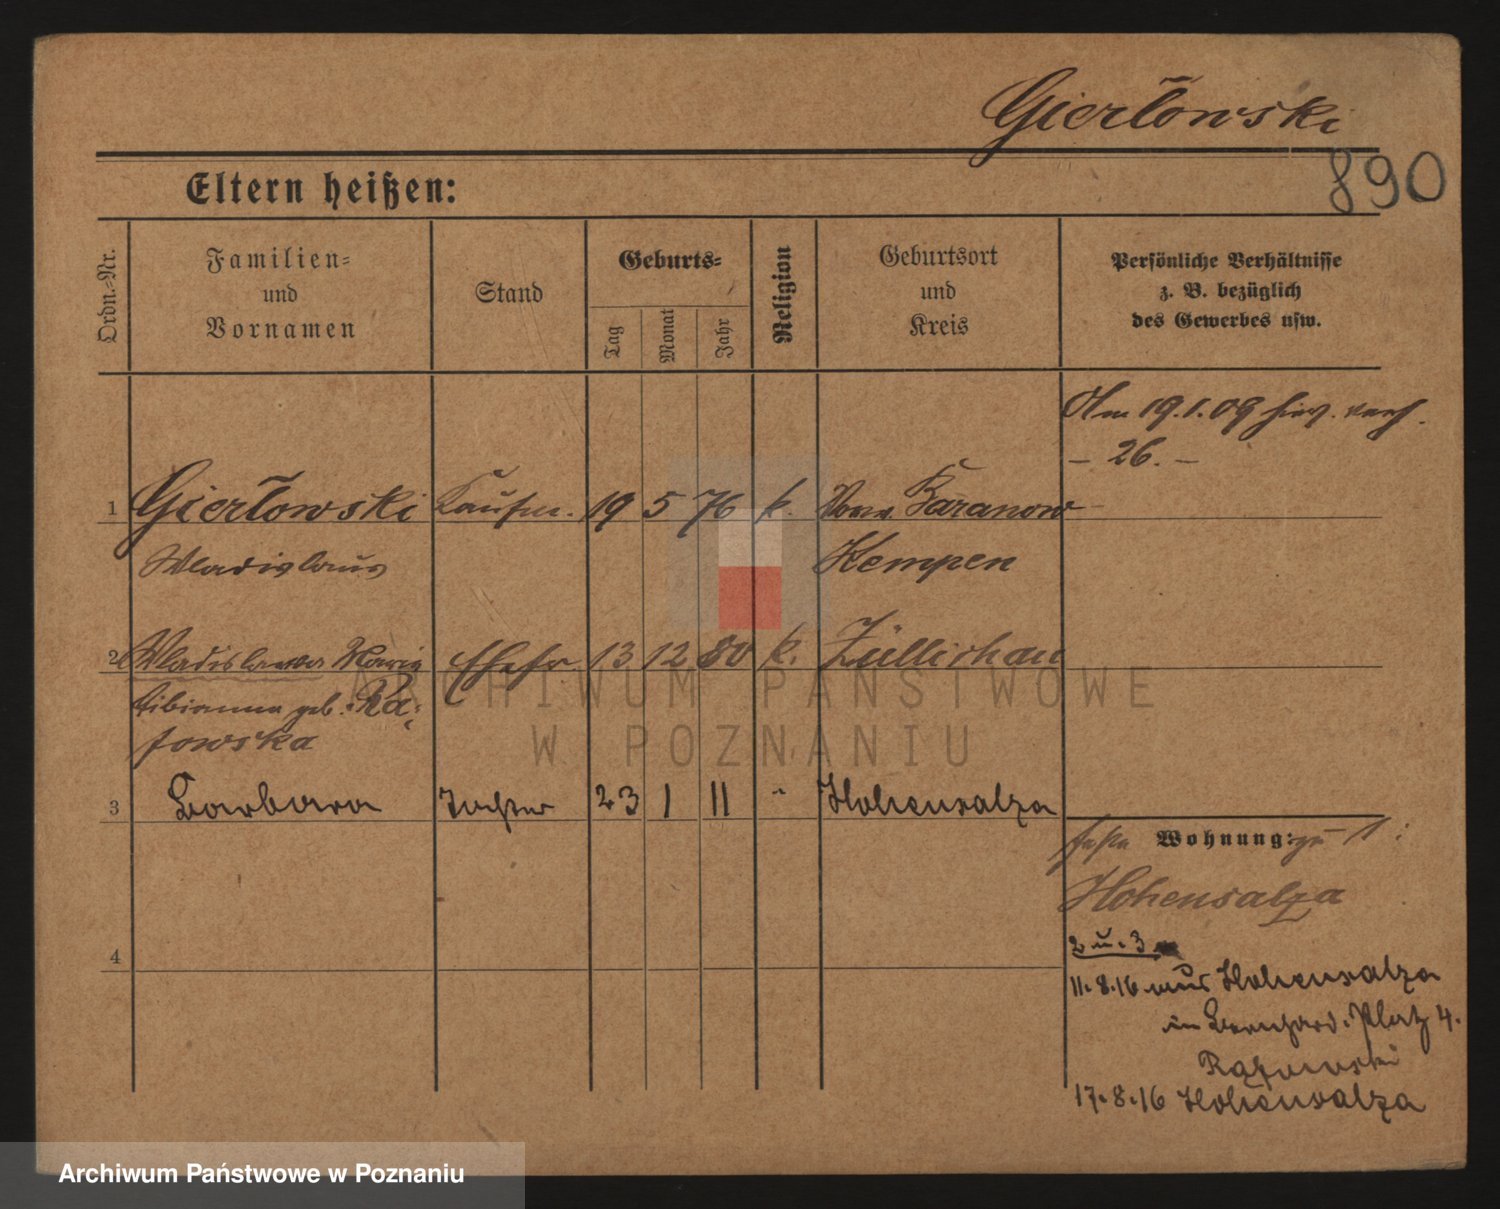 Gierłowski
890
Eltern heißen:
Ordn.-Nr.
Familien=
und
Vornamen
Stand
Geburts=
Tag
Monat
Jahr
Religion
Geburtsort
und
Kreis
Persönliche Verhältnisse
z. B. bezüglich
des Gewerbes usw.
Am 19.1.09 hier. verh.
– 26. –
1 Gierłowski Kaufm. 19 5 76 k. Baranow
Wladislaus Kempen
2 Wladislawa Maria Ehefr 13 12 80 k. Züllichau
Bibianna geb. Ra-
fowska
3 Barbara Tochter 23 1 11 " Hohensalza
Wohnung: zu 1:
Hohensalza
4
2 u. 3
11.8.16 aus Hohensalza
in Bernhard. Platz 4.
17.8.16 Hohensalza
ARCHIWUM PAŃSTWOWE
W POZNANIU
Archiwum Państwowe w Poznaniu